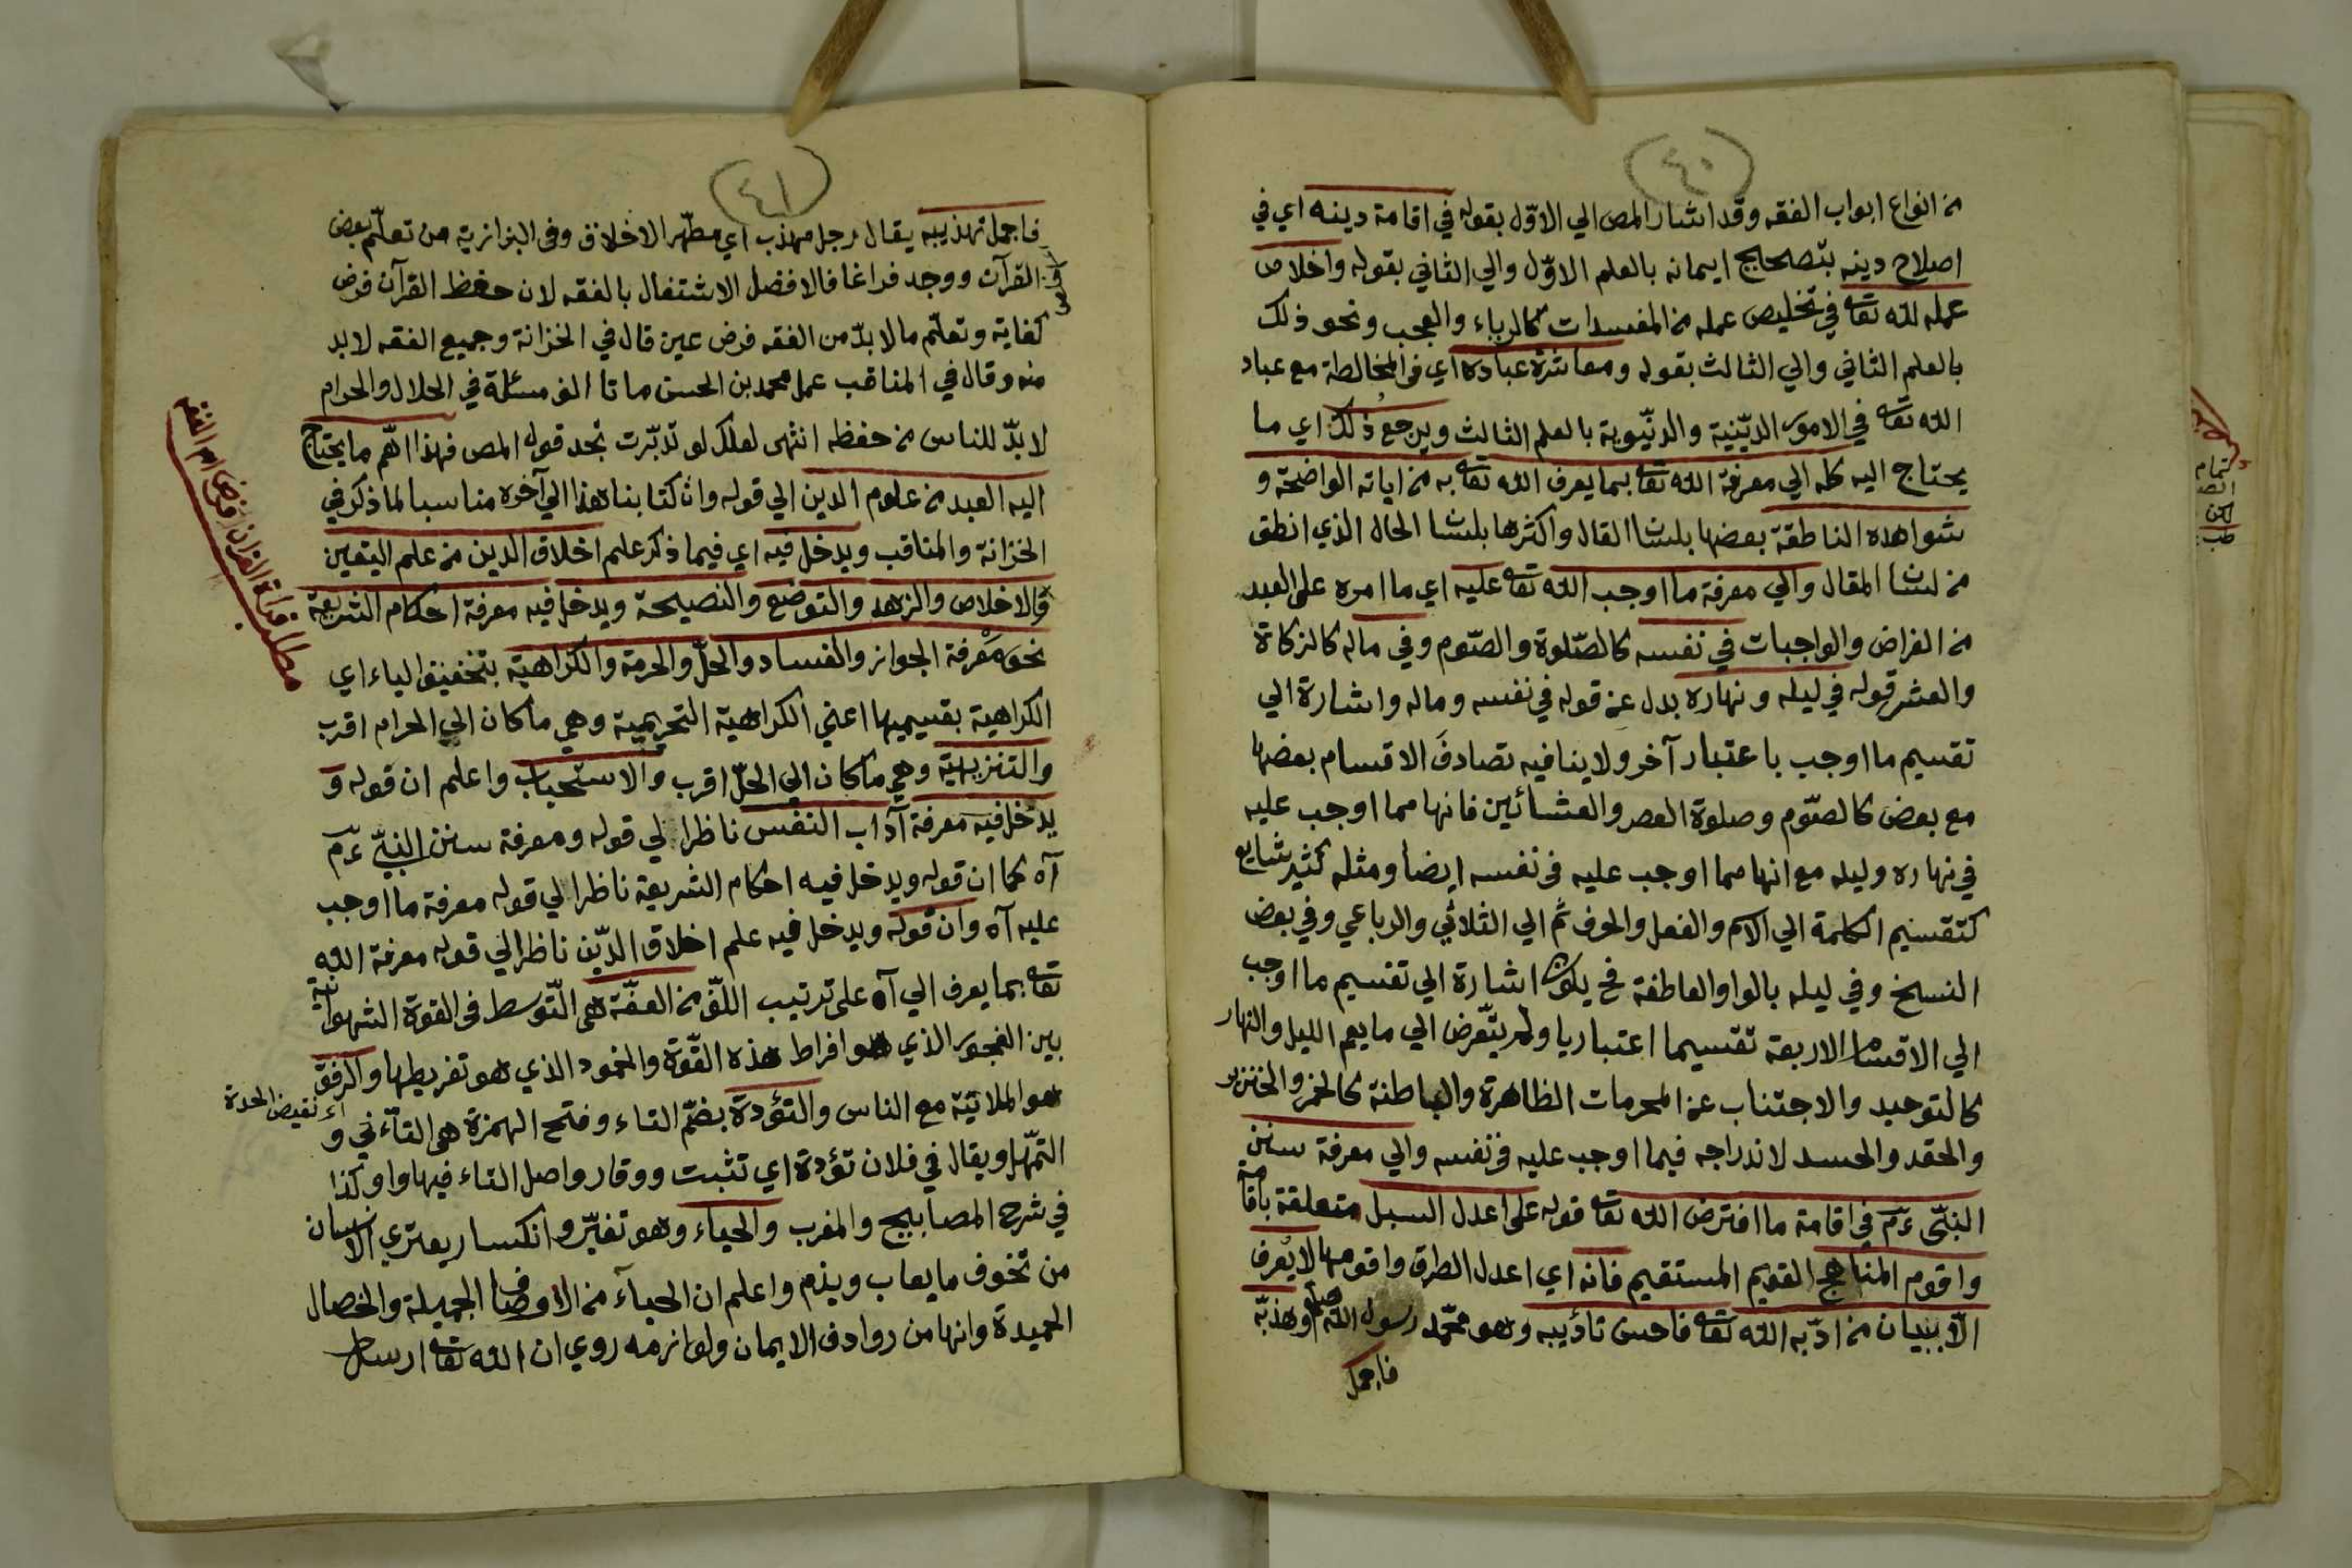 (٤٠)
من انواع ابواب الفقه وقد اشار المص الي الاوّل بقوله في اقامة دينه اي في
اصلاح دينه بتصحيح ايمانه بالعلم الاوّل والي الثاني بقوله واخلاص
عمله لله تعا في تخليص عمله من المفسدات كالرياء والعجب ونحو ذلك
بالعلم الثاني والي الثالث بقوله ومعاشرة عباده اي في المخالطة مع عباد
الله تعا في الامور الدّينية والدنيوية بالعلم الثالث ويرجع ذلك اي ما
يحتاج اليه كله الي معرفة الله تعا بما يعرف الله تعا به من اياته الواضحة و
شواهده الناطقة بعضها بلسا القال واكثرها بلسا الحال الذي انطق
من لسا المقال والي معرفة ما اوجب الله تعا عليه اي ما امره على العبد
من الفراض والواجبات في نفسه كالصّلوة والصّوم وفي ماله كالزكاة
والعشر قوله في ليله ونهاره بدل عن قوله في نفسه وماله واشارة الي
تقسيم ما اوجب باعتبار آخر ولا ينافيه تصادف الاقسام بعضها
مع بعض كالصّوم وصلوة العصر والعشائين فانها مما اوجب عليه
في نهاره وليله مع انها مما اوجب عليه في نفسه ايضا ومثله كثير شايع
كتقسيم الكلمة الي الاسم والفعل والحرف ثم الي الثلاثي والرباعي وفي بعض
النسخ وفي ليله بالواو العاطفة فح يكون اشارة الي تقسيم ما اوجب
الي الاقسام الاربعة تقسيما اعتباريا ولم يتعرض الي ما يعم الليل والنهار
كالتوحيد والاجتناب عن المحرمات الظاهرة والباطنة كالخمر والخنزير
والحقد والحسد لاندراجه فيما اوجب عليه في نفسه والي معرفة سنن
النبّى ءم في اقامة ما افترض الله تعا قوله على اعدل السبل متعلقة باقامة
واقوم المناهج القويم المستقيم فانه اي اعدل الطرق واقومها لا يعرف
الا ببيان من ادّبه الله تعا فاحسن تأديبه وهو محمّد رسول الله صلعم وهذبّه
فاجمل
(٤١)
فاجمل تهذيبه يقال رجل مهذب اي مطهّر الاخلاق وفي البزازية من تعلّم بعض
القرآن ووجد فراغا فالافضل الاشتغال بالفقه لان حفظ القرآن فرض
كفاية وتعلّم ما لا بدّ من الفقه فرض عين قال في الخزانة وجميع الفقه لا بد
منه وقال في المناقب عمل محمد بن الحسن ماتا الف مسئلة في الحلال والحرام
لا بدّ للناس من حفظه انتهى لعلك لو تدبّرت تجد قول المص فهذا اهّم ما يحتاج
اليه العبد من علوم الدين الي قوله وان كتابنا هذا الي آخره مناسبا لما ذكر في
الخزانة والمناقب ويدخل فيه اي فيما ذكر علم اخلاق الدين من علم اليقين
والاخلاص والزهد والتوضع والنصيحة ويدخل فيه معرفة احكام الشريعة
نحو معرفة الجواز والفساد والحلّ والحرمة والكراهية بتخفيف الياء اي
الكراهية بقسيميها اعني الكراهية التحريمية وهي ما كان الي الحرام اقرب
والتنزيهية وهي ما كان الي الحلّ اقرب والاستحباب واعلم ان قوله و
يدخل فيه معرفة آداب النفس ناظرا لي قوله ومعرفة سنن النبيّ ءم
آه كما ان قوله ويدخل فيه احكام الشريعة ناظرا لي قوله معرفة ما اوجب
عليه آه وان قوله ويدخل فيه علم اخلاق الدّين ناظرا لي قوله معرفة الله
تعا بما يعرف الي آه على ترتيب اللفّ من العفّة هى التّوسط في القوة الشهوانية
بين الفجور الذي هو افراط هذه القّوة والخمود الذي هو تفريطها والرفق
اء نقيض الحدة
هو الملائنة مع الناس والتؤدة بضمّ التاء وفتح الهمزة هى التأنّي و
التمهّل ويقال في فلان تؤدة اي تثبت ووقار واصل التاء فيها واو كذا
في شرح المصابيح والمغرب والحياء وهو تغيّر وانكسار يعتري الانسان
من تخوف ما يعاب ويذم واعلم ان الحياء من الاوصاف الجميلة والخصال
الحميدة وانها من روادف الايمان ولوازمه روي ان الله تعا ارسل
مطلب قراءة القران افضل ام الفقه